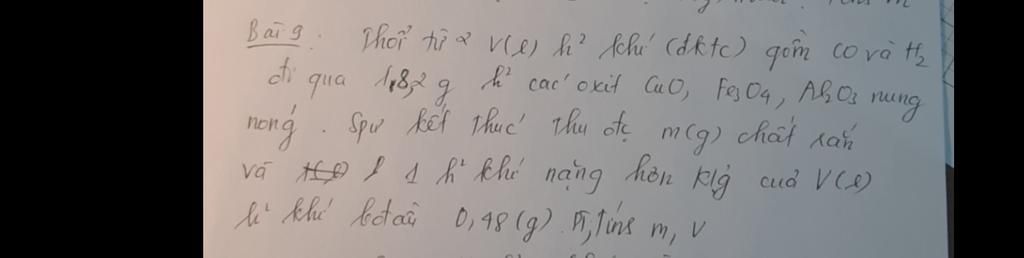 Bài 9. Thổi từ từ V(l) h² khí (đktc) gồm CO và H₂
đi qua 1,8,2 g h² các oxit CuO, Fe₃O₄, Al₂O₃ nung
nóng. Spư kết thúc thu đc m(g) chất rắn
và 1 h² khí nặng hơn klg của V(l)
h² khí bđầu 0,48(g). Tính m, V